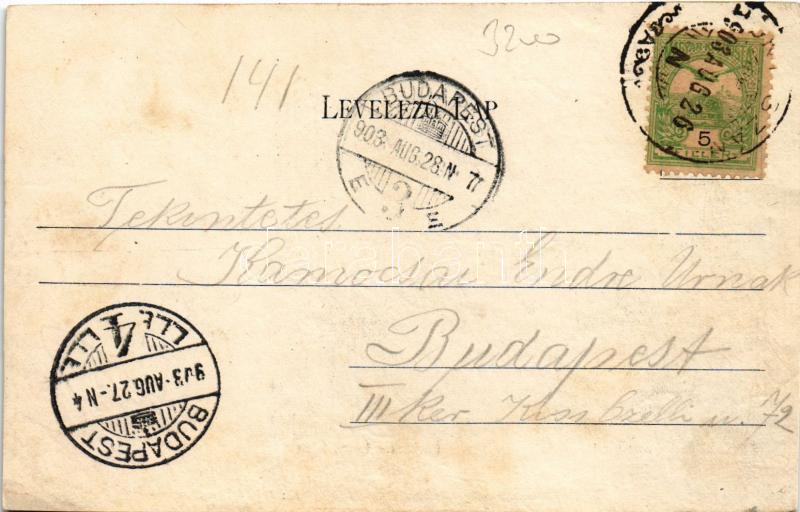 3200
141
LEVELEZŐ LAP
BUDAPEST
903. AUG. 28. N 7
903 AUG 26
N
5
Tekintetes
Kamocsai Endre Urnak
Budapest
III ker. Kis Czelli u. 72
903. AUG. 27. N 4
BUDAPEST
darabanth